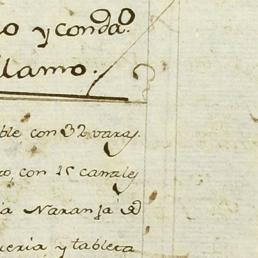 o y condo.
llamo.
ble con 32 varas.
ro, con 15 canales
ia Naranja
ueria, y tableta